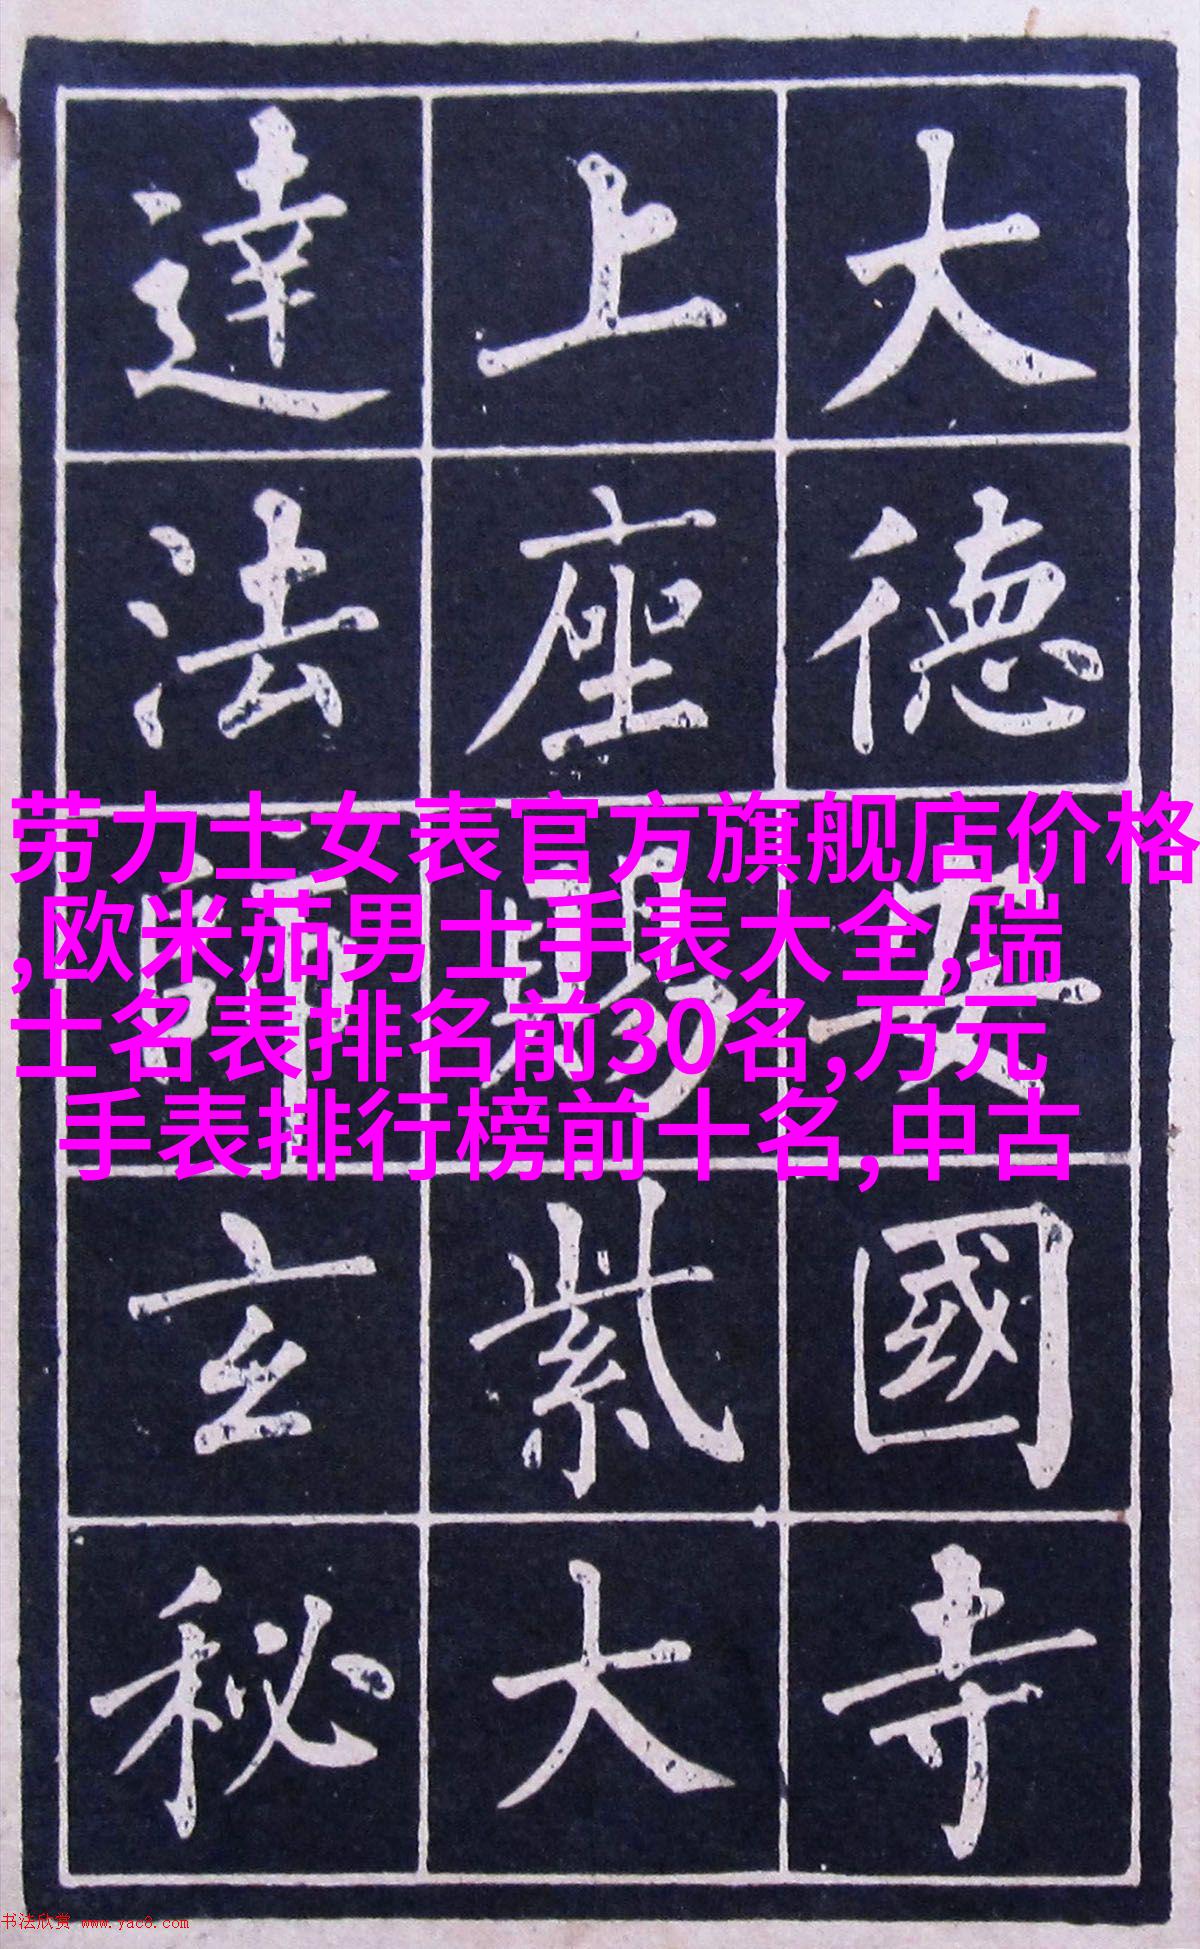 大德安國寺
上座賜紫大
達法師玄秘
劳力士女表官方旗舰店价格
,欧米茄男士手表大全,瑞
士名表排名前30名,万元
手表排行榜前十名,中古
书法欣赏 www.yac8.com